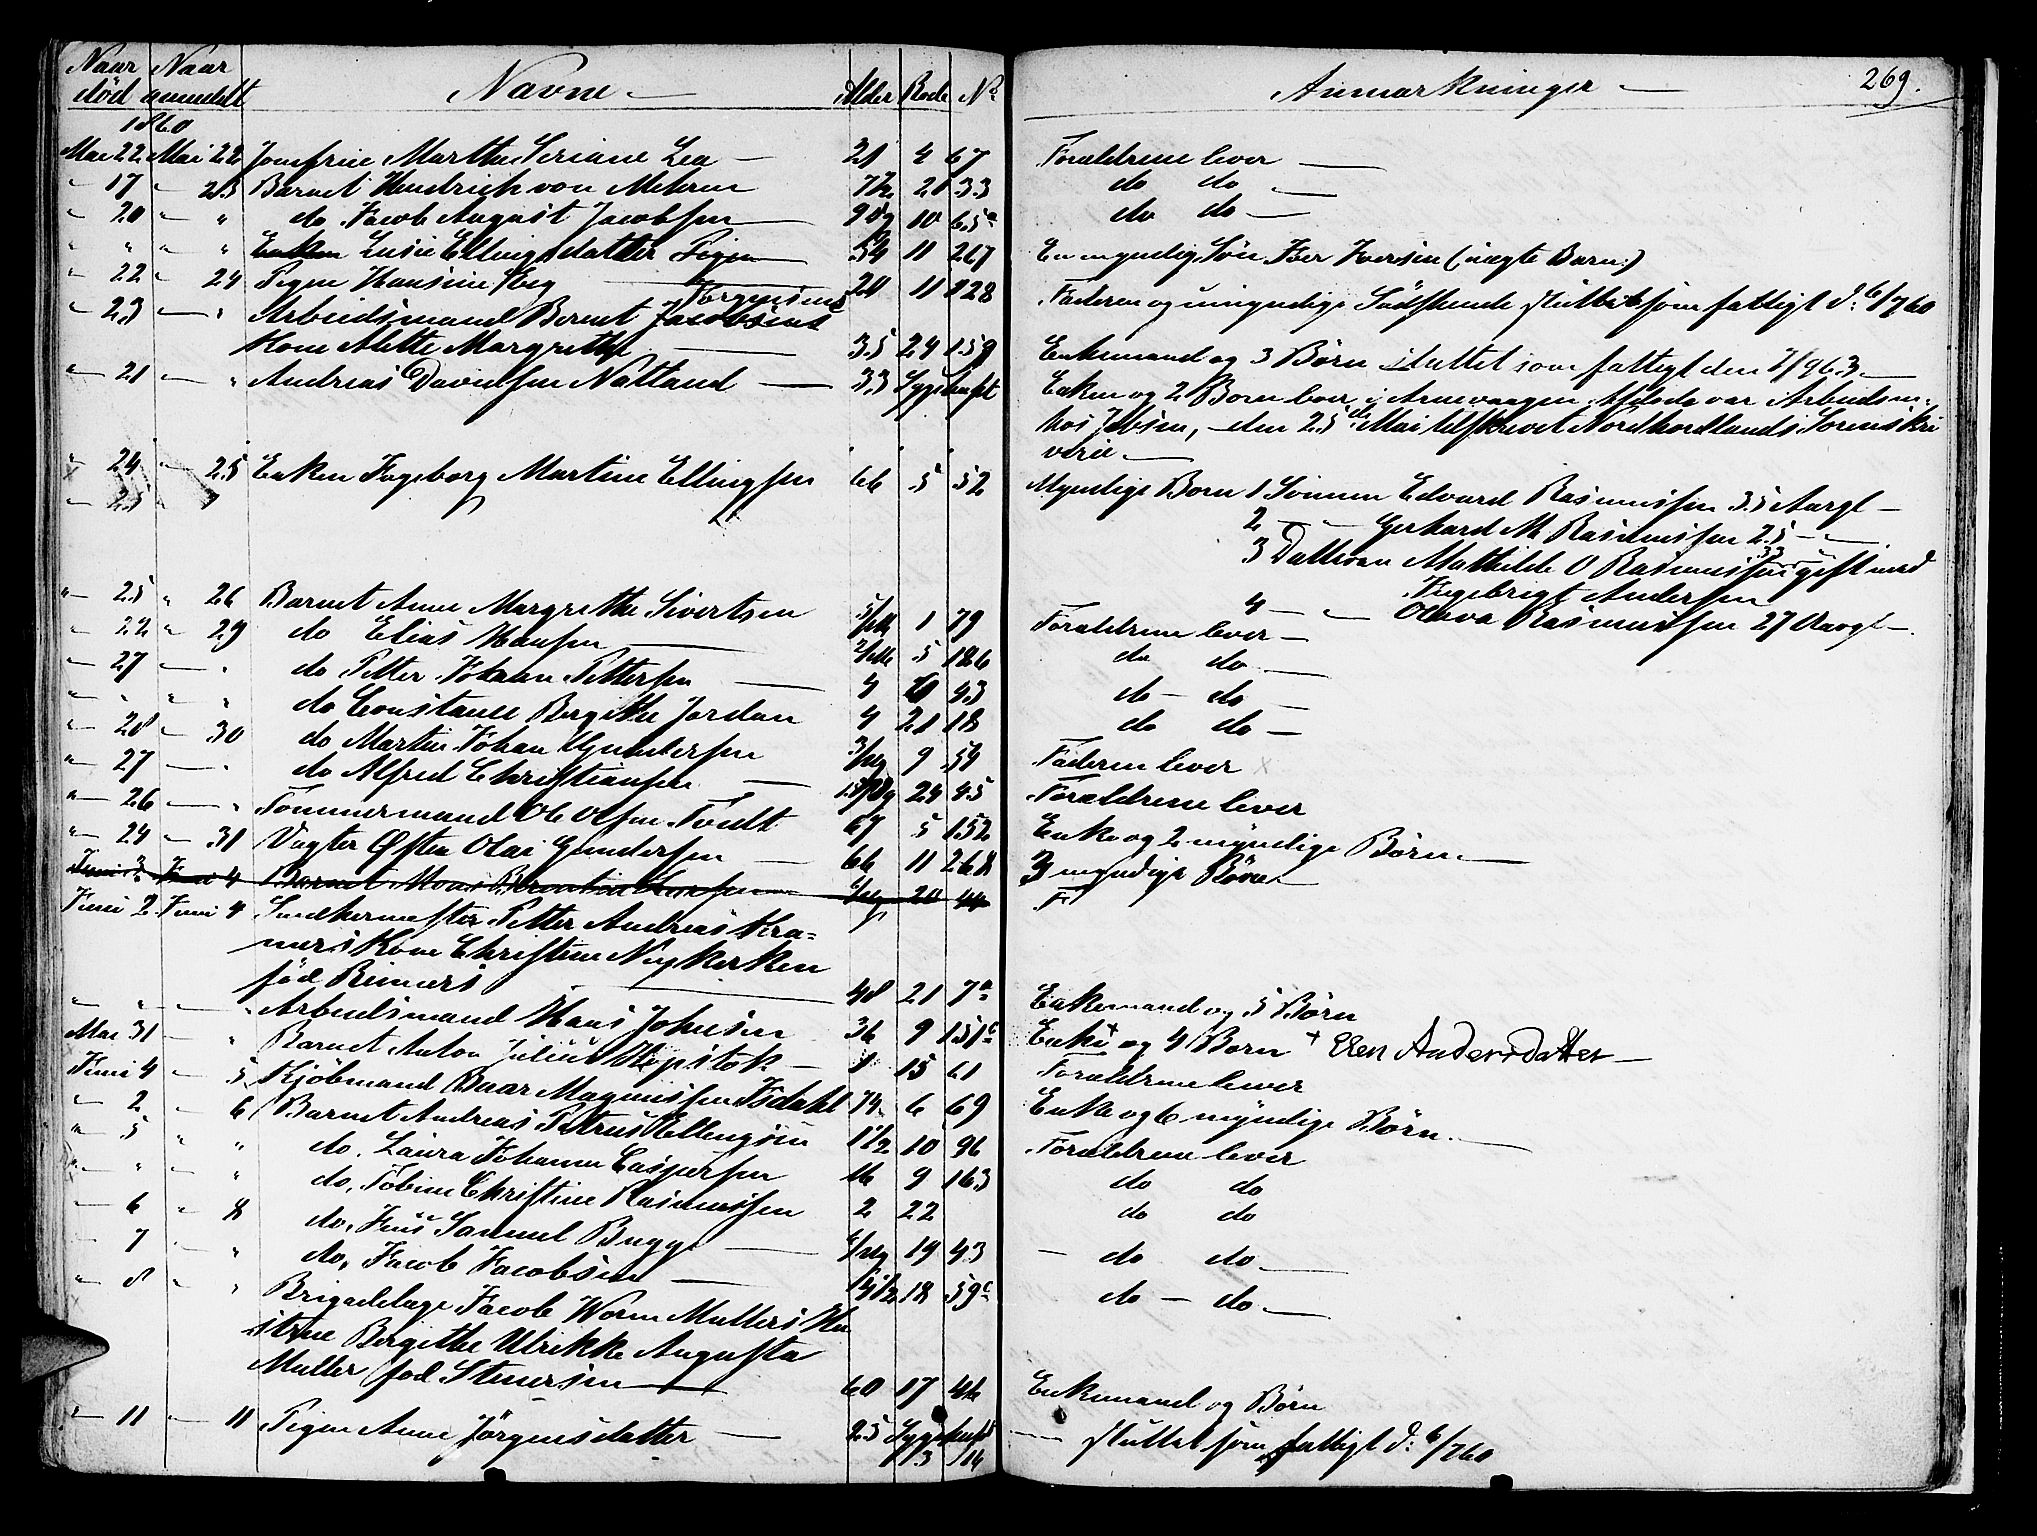 Naar død Naar anmeldt Navne Alder Rode No Anmærkninger 269.
1860
Mai 22 Mai 22 Jomfrue Martha Seriane Lea 21 4 67 Forældrene lever
" 17 " 23 Barnet Hendrich von Mehren 7 21 33 do do
" 20 " " do Jacob August Jacobsen 10 65a do do
" " " " Enken Lusie Ellingsdatter Pigen 54 11 267 En myndig Søn Iver Iversen (uægte Barn)
" 22 " 24 Pigen Hansine 20 11 128 Faderen og umyndige Sødskende sluttet som fattigt d. 6/7 60
" 23 " " Arbeidsmand Bernt Jacobsens Torgersens
Kone Alette Margrethe 35 24 159 Enkemand og 3 Børn sluttet som fattigt den 63
" 21 " " Andreas Davidsen Natland 33 Sygehuset Enken og 2 Børn lever i Arnevaagen Afdøde var Arbeidsm.
hos Jebsen, den 25de Mai tilskrevet Nordhordlands Sorenskri
verie
" 24 " 25 Enken Ingeborg Martine Ellingsen 66 5 52 Myndige Børn 1 Sønnen Edvard Rasmussen 35 Aargl
" 25 2 " Gerhard M Rasmussen 25 "
3 Datteren Mathilde O Rasmussen 33 gift med
Ingebrigt Andersen
4 " Olava Rasmussen 27 Aargl
" 25 " 26 Barnet Anne Margrethe Sivertsen 1 79 Forældrene lever
" 22 " 29 do Elias Hansen 5 186 do do
" 27 " " do Petter Johan Pettersen 4 10 43 do do
" " " " do Constance Bergitte Jordan 4 21 18 do do
" 28 " 30 do Martin Johan Gundersen 9 59 Faderen lever
" 27 " " do Alfred Christiansen 24 45 Forældrene lever
" 26 " " Tømmermand Ole Olsen Tvedt 67 5 152 Enke og 2 myndige Børn
" 24 " 31 Vægter Østen Olai Gundersen 66 11 268 3 myndige Børn
Juni 3 Juni 4 Barnet Mons 20 44 F
Juni 2 Juni 4 Snedkermester Petter Andreas Kra=
mers Kone Christine Nykerken
fød Reimers 48 21 7a Enkemand og 5 Børn
" " " " Arbeidsmand Hans Johnsen 36 9 151c Enke og 4 Børn + Elen Andersdatter
Mai 31 " " Barnet Anton Julius 1 15 61 Forældrene lever
Juni 4 " 5 Kjøbmand Baar Magnussen Isdahl 74 6 69 Enke og 6 myndige Børn
" 2 " 6 Barnet Andreas Petrus Ellingsen 1 1/2 10 96 Forældrene lever
" 5 " " do. Laura Johanne Caspersen 16 9 163 do do
" " " do. Tobine Christine Rasmussen 2 22 do do
" 6 " 8 do. Jens Samuel Bugge 19 43 do do
" 7 " do. Jacob Jacobsen 18 59c do do
" 8 " " Brigadelæge Jacob Worm Mullers Hu
strue Bergithe Ulrikke Augusta
Muller fød Stuersen 60 17 46 Enkemand og Børn
" 11 " 11 Pigen Anne Jørgensdatter 25 Sygehuset sluttet som fattigt d. 6/7 60
13 14